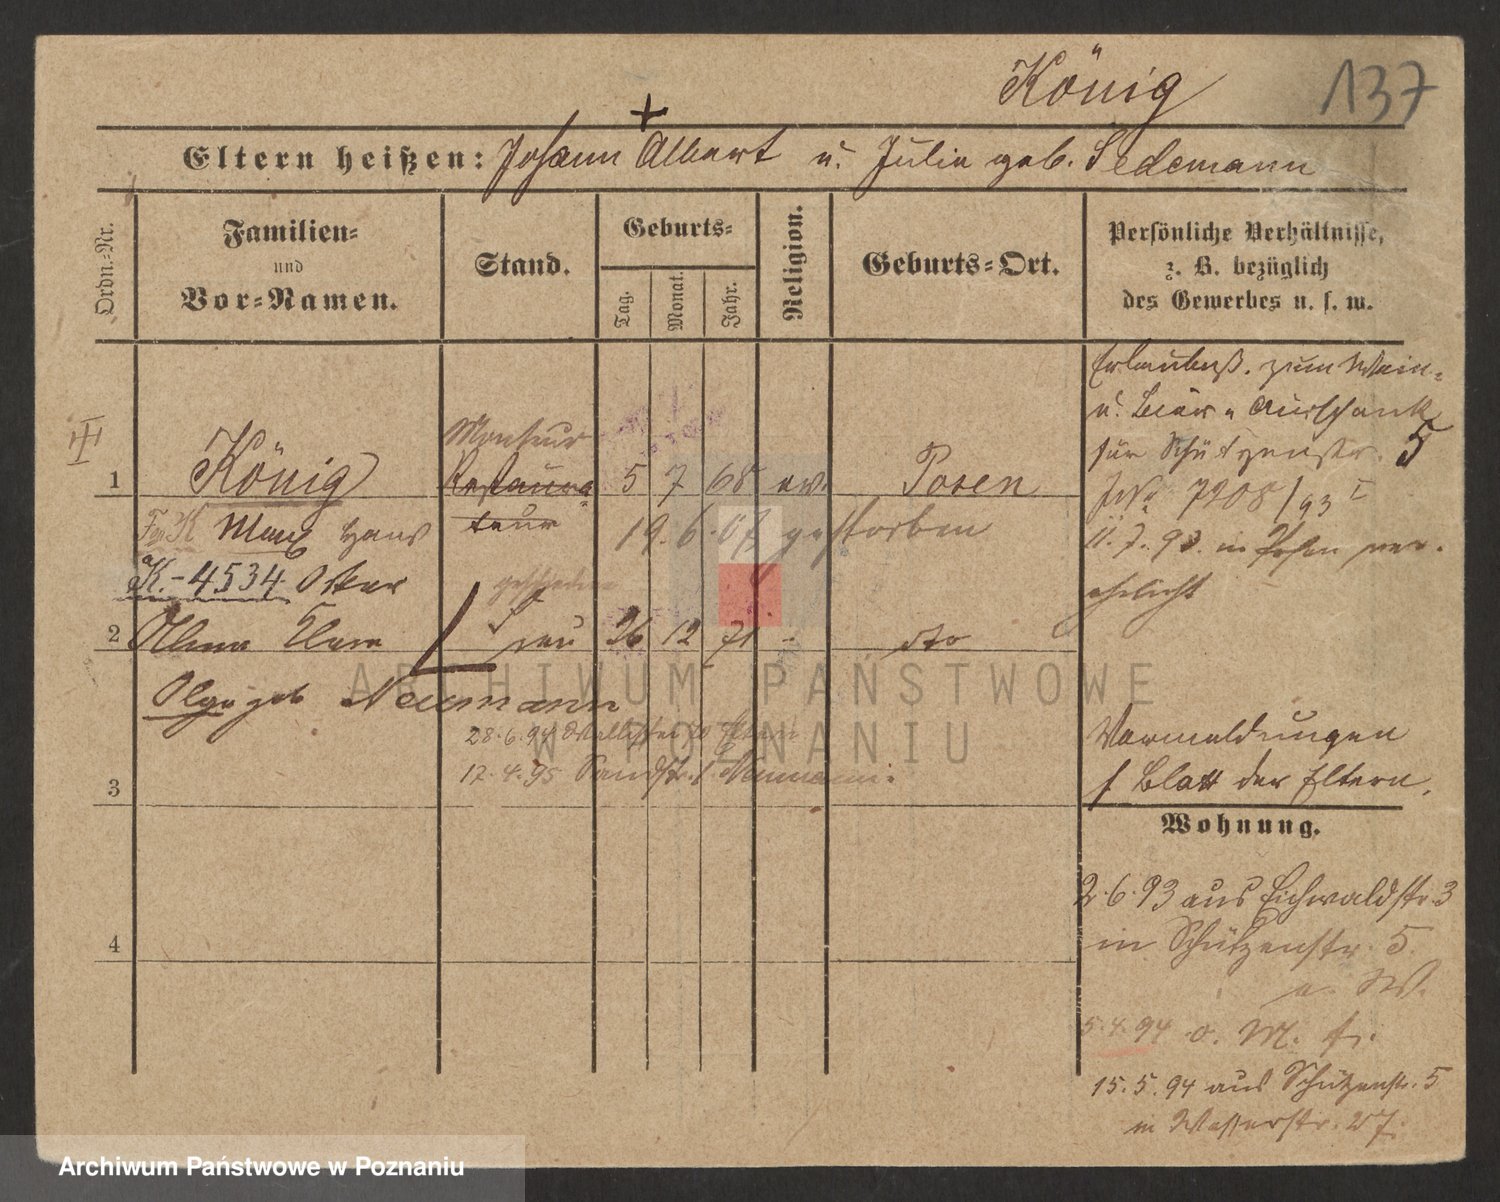 König
137
Eltern heißen: Johann Albert u. Julie geb. Sedemann
Ordn.-Nr.
Familien-
und
Vor-Namen.
Stand.
Geburts-
Tag.
Monat.
Jahr.
Religion.
Geburts-Ort.
Persönliche Verhältnisse,
z. B. bezüglich
des Gewerbes u. s. w.
Erlaubniß zum Wein-
u. Bier-Ausschank
für Schützenstr. 5
7908/93 I
11.7.93. in Posen ver-
ehelicht
Monteur
1 König Restaura- 5 7 68 ev. Posen
teur
Max Hans
19.6.07 gestorben
K.-4534 Oskar
geschieden
2 Alma Clara Frau 26 12 71 - dto
Olga geb Neumann
28.6.94 Eltern
17.4.95 Sandstr. Neumann.
Vermeldungen
s Blatt der Eltern.
3
Wohnung.
2.6.93 aus Eichwaldstr. 3
in Schützenstr. 5.
4
5.4.94 o. M.
15.5.94 aus Schützenstr. 5
in Wasserstr. 27.
ARCHIWUM PAŃSTWOWE
W POZNANIU
Archiwum Państwowe w Poznaniu